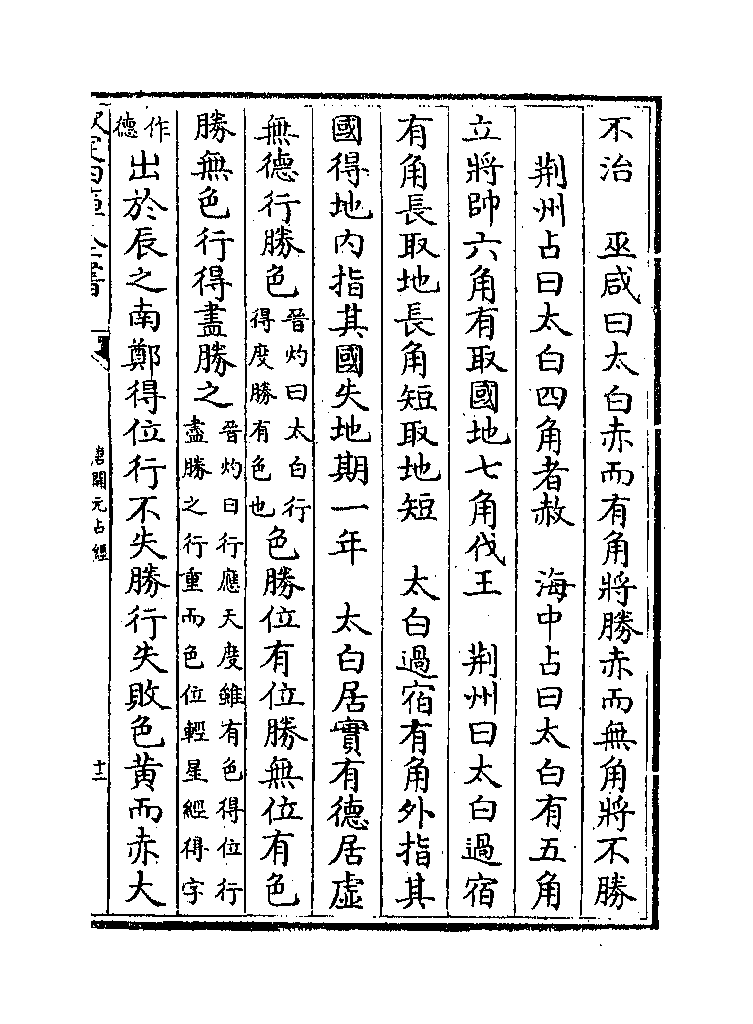 不治　巫咸曰太白赤而有角將勝赤而無角將不勝
荆州占曰太白四角者赦　海中占曰太白有五角
立將帥六角有取國地七角伐王　荆州曰太白過宿
有角長取地長角短取地短　太白過宿有角外指其
國得地内指其國失地期一年　太白居實有德居虚
無德行勝色晉灼曰太白行得度勝有色也色勝位有位勝無位有色
勝無色行得盡勝之晉灼曰行應天度雖有色得位行盡勝之行重而色位輕星經得字
作德出於辰之南鄭得位行不失勝行失敗色黄而赤大
唐開元占經
十二